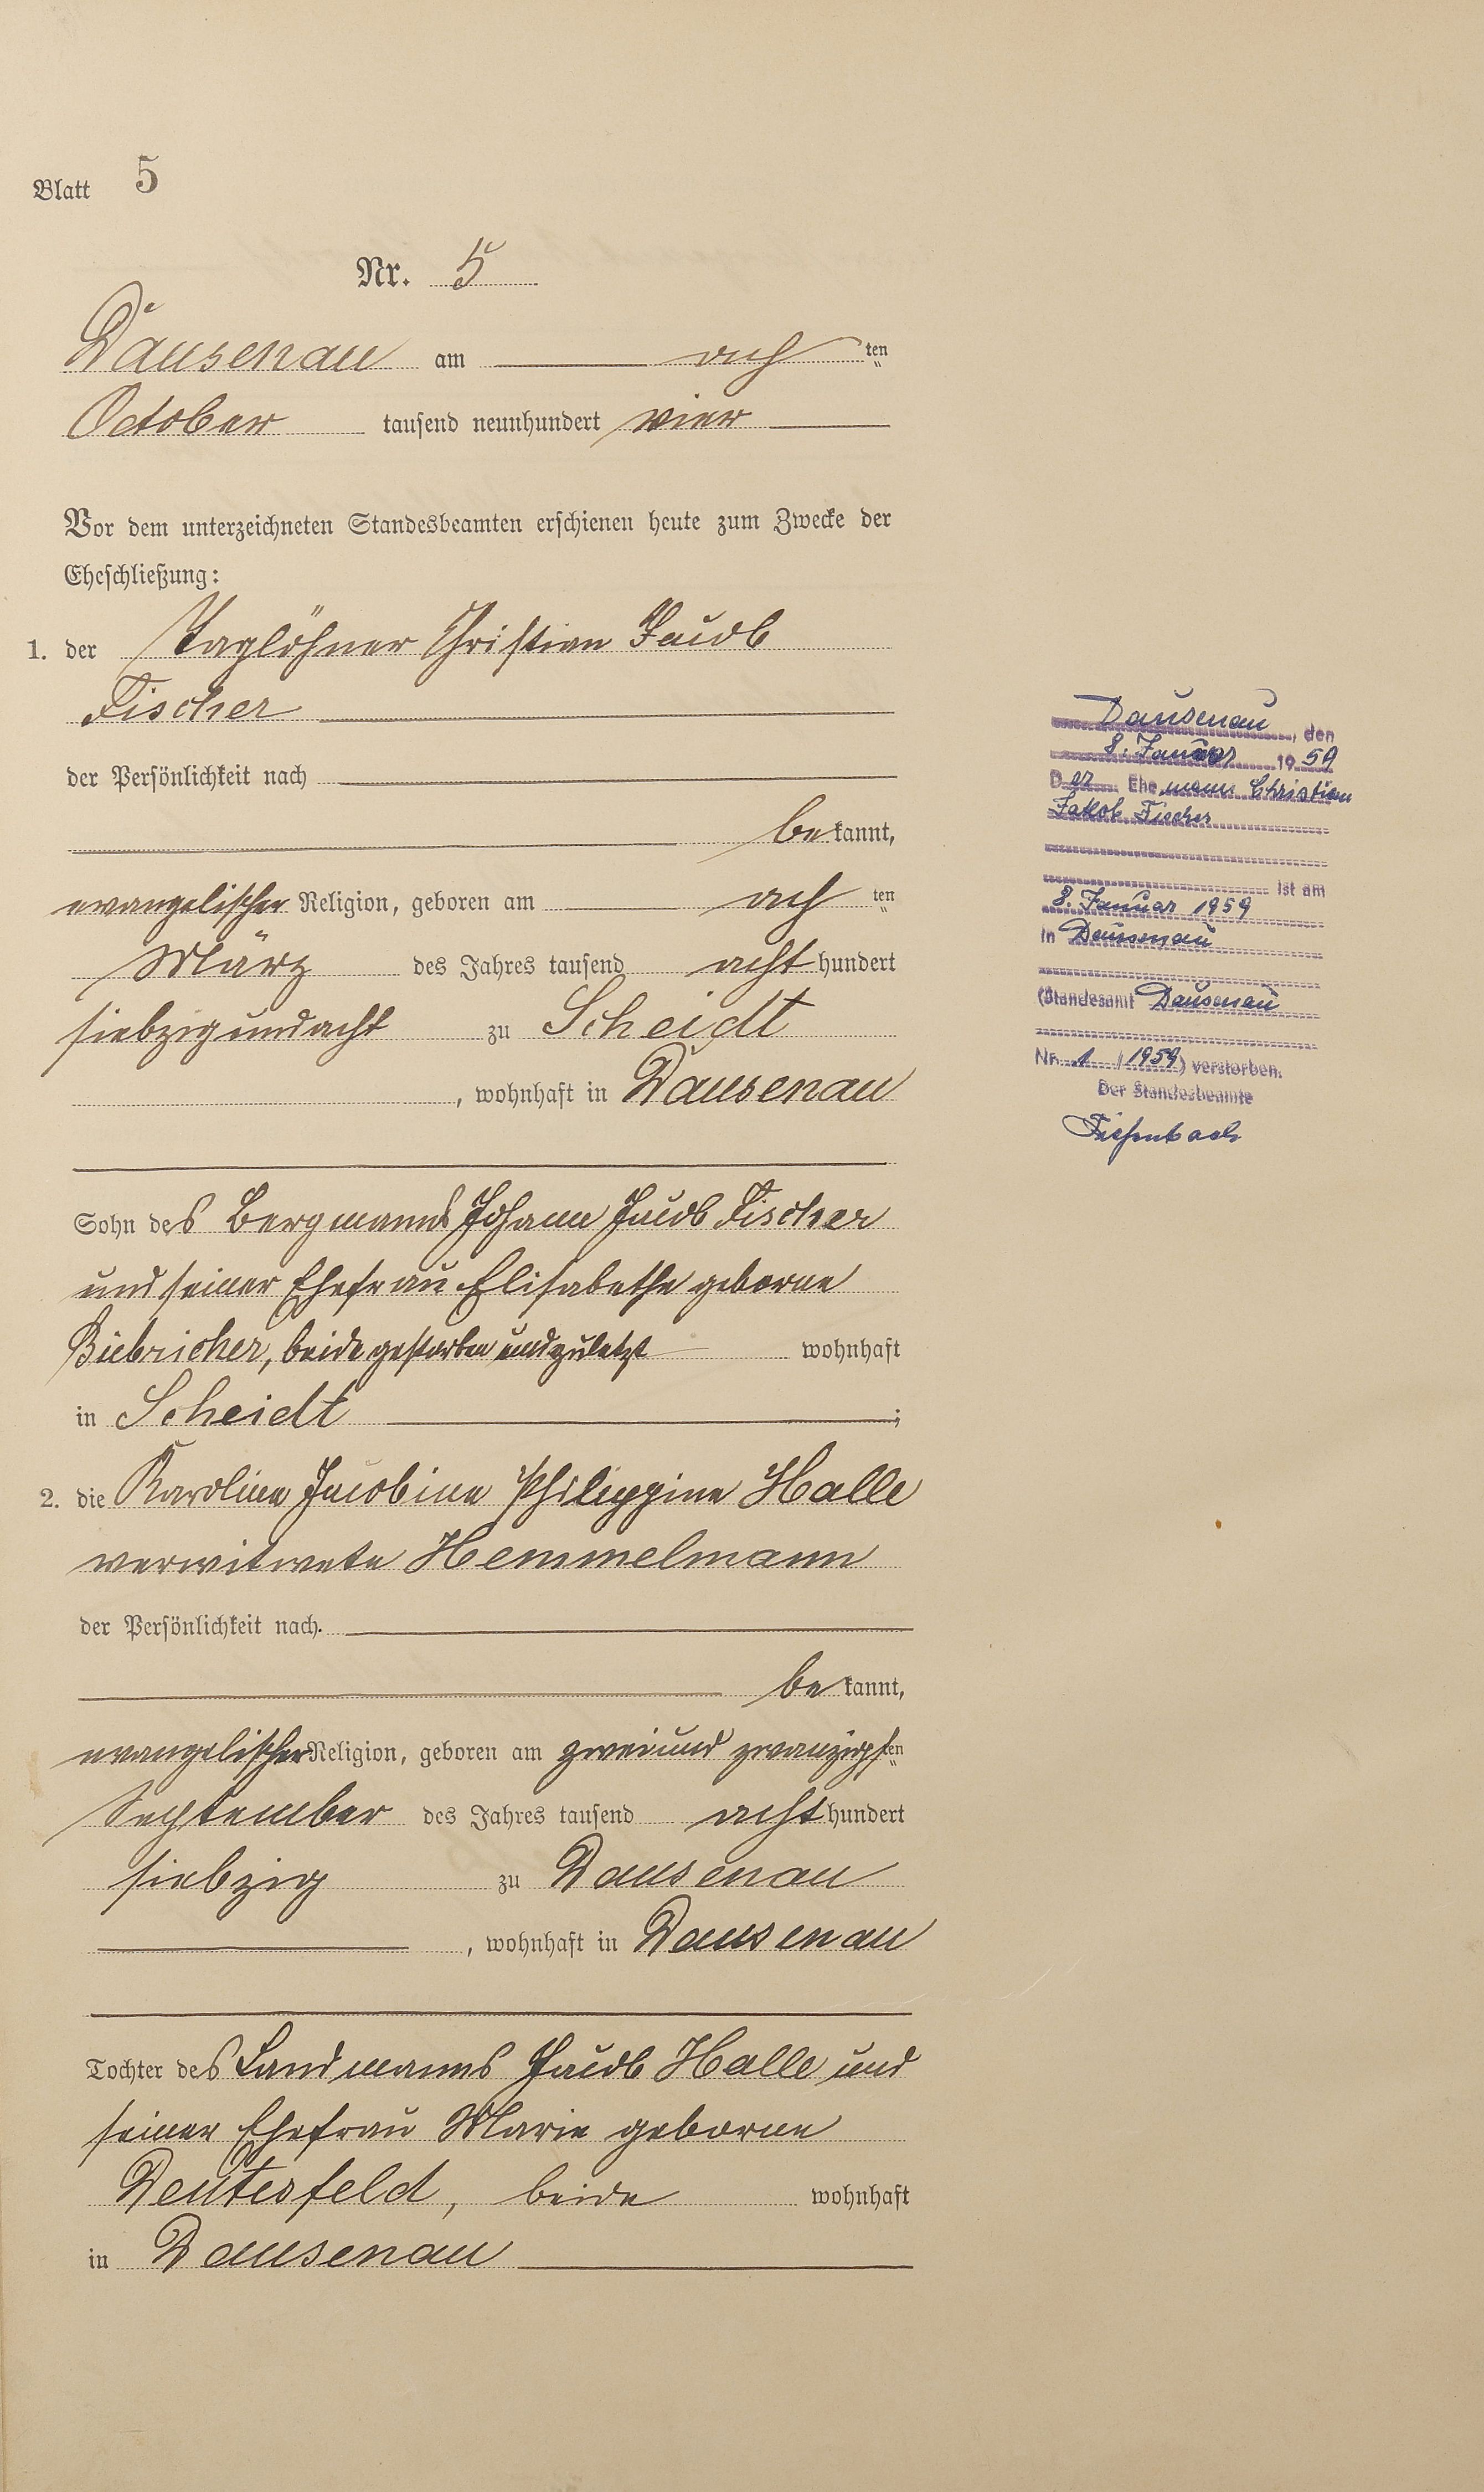 Blatt 5
Nr. 5
Dausenau am ach ten
October tausend neunhundert vier
Vor dem unterzeichneten Standesbeamten erschienen heute zum Zwecke der
Eheschließung:
1. der Taglöhner Christian Jacob
Fischer
der Persönlichkeit nach
be kannt,
evangelischer Religion, geboren am ach ten
März des Jahres tausend acht hundert
siebzig und acht zu Scheidt
, wohnhaft in Dausenau
Sohn des Bergmanns Johann Jacob Fischer
und seiner Ehefrau Elisabethe geborne
Biebricher, beide gestorben und zuletzt wohnhaft
in Scheidt ;
2. die Karoline Jacobine Philippine Halle
verwitwete Hemmelmann
der Persönlichkeit nach
be kannt,
evangelischer Religion, geboren am zweiund zwanzigsten
September des Jahres tausend acht hundert
siebzig zu Dausenau
, wohnhaft in Dausenau
Tochter des Landmanns Jacob Halle und
seiner Ehefrau Marie geborne
Deutesfeld, beide wohnhaft
in Dausenau
Dausenau, den
8. Januar 1959
Der Ehemann Christian
Jakob Fischer
ist am
8. Januar 1959
in Dausenau
(Standesamt Dausenau
Nr. 1 / 1959) verstorben.
Der Standesbeamte